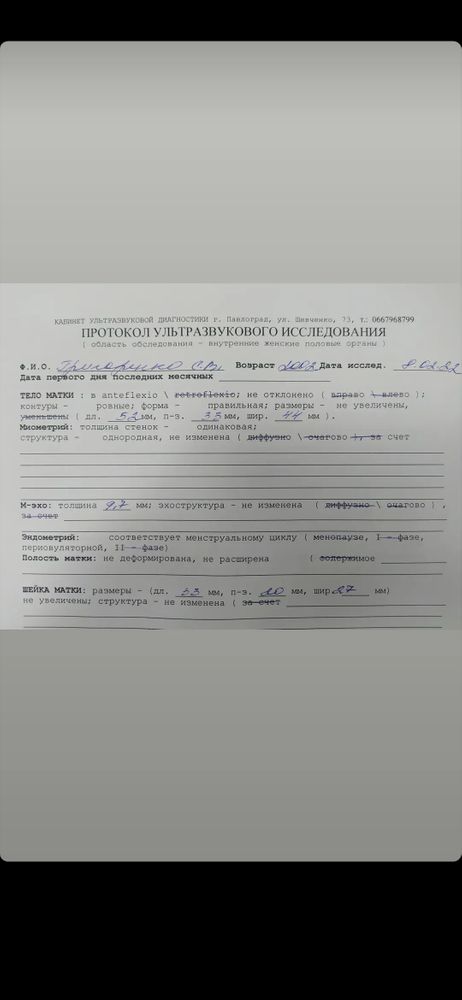 КАБИНЕТ УЛЬТРАЗВУКОВОЙ ДИАГНОСТИКИ г. Павлоград, ул. Шевченко, 73, т.: 0667968799
ПРОТОКОЛ УЛЬТРАЗВУКОВОГО ИССЛЕДОВАНИЯ
( область обследования - внутренние женские половые органы )
Ф.И.О. Григоренко С.В. Возраст 2002 Дата исслед. 8.02.22
Дата первого дня последних месячных
ТЕЛО МАТКИ : в anteflexio \ retroflexio; не отклонено ( вправо \ влево );
контуры - ровные; форма - правильная; размеры - не увеличены,
уменьшены ( дл. 52 мм, п-з. 33 мм, шир. 44 мм ).
Миометрий: толщина стенок - одинаковые;
структура - однородная, не изменена ( диффузно \ очагово ), за счет
М-эхо: толщина 9,7 мм; эхоструктура - не изменена ( диффузно \ очагово ) ,
за счет
Эндометрий: соответствует менструальному циклу ( менопаузе, I - фазе,
периовуляторной, II - фазе)
Полость матки: не деформирована, не расширена ( содержимое
ШЕЙКА МАТКИ: размеры - (дл. 33 мм, п-з. 20 мм, шир 27 мм)
не увеличены; структура - не изменена ( за счет